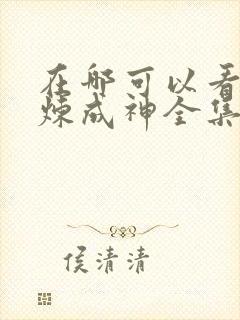 在哪可以看
炼成神全集
侯清清